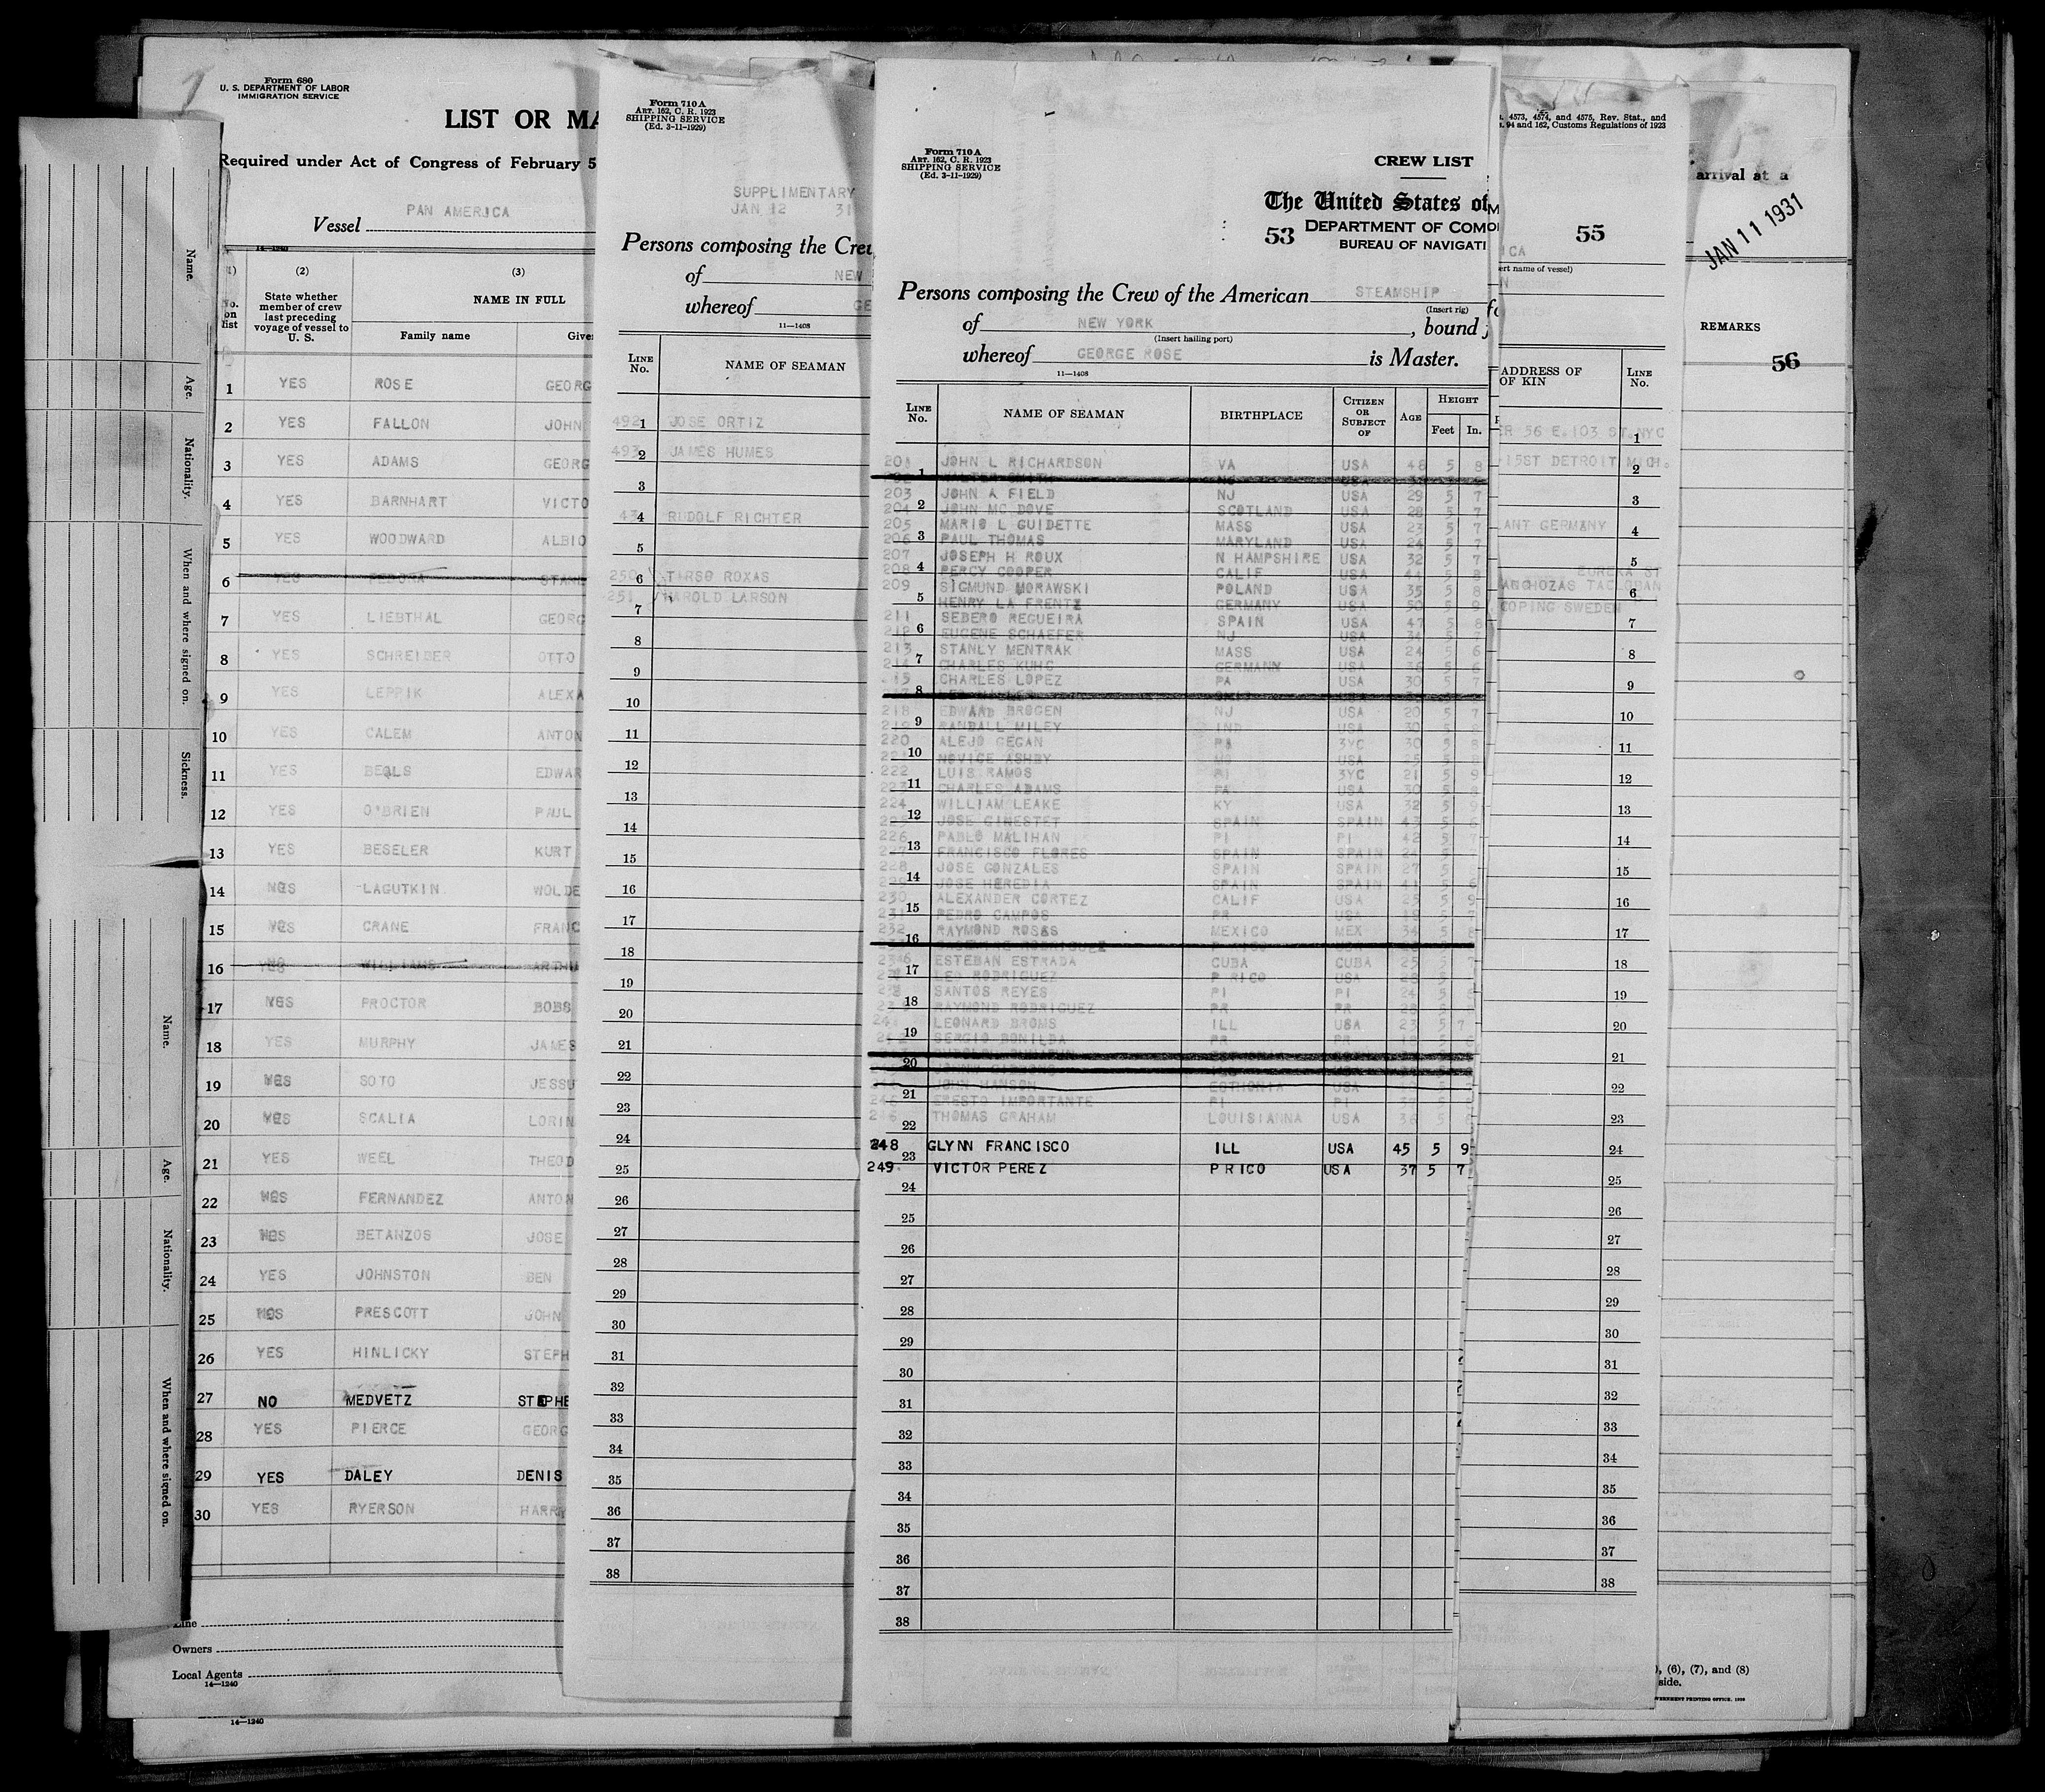 Form 680
U. S. DEPARTMENT OF LABOR
IMMIGRATION SERVICE
LIST OR MA
Required under Act of Congress of February 5
Vessel PAN AMERICA
14—1240
(2) (3)
No. on list
State whether member of crew last preceding voyage of vessel to U. S.
NAME IN FULL
Family name Give
1 YES ROSE GEORG
2 YES FALLON JOHN
3 YES ADAMS GEORG
4 YES BARNHART VICTO
5 YES WOODWARD ALBIO
6 YES
7 YES LIEBTHAL GEORG
8 YES SCHREIBER OTTO
9 YES LEPPIK ALEXA
10 YES CALEM ANTON
11 YES BEALS EDWAR
12 YES O'BRIEN PAUL
13 YES BESELER KURT
14 LAGUTKIN WOLDE
15 CRANE FRANC
16 WILLIAMS ARTHU
17 PROCTOR BOBS
18 YES MURPHY JAMES
19 SOTO JESSU
20 SCALIA LORIN
21 YES WEEL THEOD
22 FERNANDEZ ANTON
23 BETANZOS JOSE
24 YES JOHNSTON BEN
25 PRESCOTT JOHN
26 YES HINLICKY STEPH
27 NO MEDVETZ STEPHE
28 YES PIERCE GEORG
29 YES DALEY DENIS
30 YES RYERSON HARRY
Line
Owners
Local Agents
14—1240
14—1240
Name.
Age.
Nationality.
When and where signed on.
Sickness.
Name.
Age.
Nationality.
When and where signed on.
Form 710 A
ART. 162, C. R. 1923
SHIPPING SERVICE
(Ed. 3-11-1929)
SUPPLIMENTARY
JAN 12 31
Persons composing the Crew
of NEW
whereof GE
11—1408
LINE No. NAME OF SEAMAN
492 1 JOSE ORTIZ
493 2 JAMES HUMES
3
43 4 RUDOLF RICHTER
5
250 6 TIRSO ROXAS
251 7 HAROLD LARSON
8
9
10
11
12
13
14
15
16
17
18
19
20
21
22
23
24
25
26
27
28
29
30
31
32
33
34
35
36
37
38
Form 710 A
ART. 162, C. R. 1923
SHIPPING SERVICE
(Ed. 3-11-1929)
CREW LIST
The United States of
53 DEPARTMENT OF COM
BUREAU OF NAVIGATI
Persons composing the Crew of the American STEAMSHIP
(Insert rig)
of NEW YORK, bound
(Insert hailing port)
whereof GEORGE ROSE is Master.
11—1408
LINE No. NAME OF SEAMAN BIRTHPLACE CITIZEN OR SUBJECT OF AGE HEIGHT Feet In.
201 JOHN L RICHARDSON VA USA 46 5 8
1 WALTER SMITH
203 JOHN A FIELD NJ USA 29 5 7
204 2 JOHN MC DOVE SCOTLAND USA 28 5 7
205 MARIO L GUIDETTE MASS USA 23 5 7
206 3 PAUL THOMAS MARYLAND USA 24 5 7
207 JOSEPH H ROUX N HAMPSHIRE USA 32 5 7
208 4 PERCY COOPER CALIF USA 44 5 8
209 SIGMUND MORAWSKI POLAND USA 35 5 8
5 HENRY LA FRENTZ GERMANY USA 50 5 9
211 SEBERO REGUEIRA SPAIN USA 47 5 8
212 6 EUGENE SCHAEFER NJ USA 34 5 7
213 STANLY MENTRAK MASS USA 24 5 6
214 7 CHARLES KUHC GERMANY USA 36 5 6
215 CHARLES LOPEZ PA USA 30 5 7
8
218 EDWARD BROGEN NJ USA 20 5 7
219 9 RANDALL MILEY IND USA 30 5 8
220 ALEJO GEGAN 3YC 30 5 8
10 NOVICE ASHBY MO USA 25 5
222 LUIS RAMOS PI 3YC 21 5 9
11 CHARLES ADAMS PA USA 30 5 8
224 WILLIAM LEAKE KY USA 32 5 9
12 JOSE GINESTET SPAIN SPAIN 43 5 6
226 PABLO MALIHAN PI PI 42 5 7
13 FRANCISCO FLORES SPAIN SPAIN 24 5
228 JOSE GONZALES SPAIN SPAIN 27 5
14 JOSE HEREDIA SPAIN SPAIN 41 5 6
230 ALEXANDER CORTEZ CALIF USA 25 5 9
15 PEDRO CAMPOS PR USA 18 5 7
232 RAYMOND ROSAS MEXICO MEX 34 5 8
16 RODRIGUEZ
236 ESTEBAN ESTRADA CUBA CUBA 25 5 7
17 LEO RODRIGUEZ P RICO USA 28 5
SANTOS REYES PI PI 24 5 8
18 RAYMOND RODRIGUEZ PR PR 28 5
LEONARD BROMS ILL USA 23 5 7
19 SERGIO BONILDA PR PR 18 5 6
20
JOHN HANSON ESTHONIA USA
21 ERESTO IMPORTANTE PI PI
THOMAS GRAHAM LOUISIANNA USA 36 5 8
22
248 GLYNN FRANCISCO ILL USA 45 5 9
23
249 VICTOR PEREZ P RICO USA 37 5 7
24
25
26
27
28
29
30
31
32
33
34
35
36
37
38
4573, 4574, and 4575, Rev. Stat., and
94 and 162, Customs Regulations of 1923
55
ICA
ert name of vessel)
N
ADDRESS OF
OF KIN
LINE No.
ER 56 E. 103 ST. NYC 1
15ST DETROIT MICH. 2
3
ANT GERMANY 4
5
EUREKA ST
ANCHOZAS TACLOBAN 6
COPING SWEDEN 7
8
9
10
11
12
13
14
15
16
17
18
19
20
21
22
23
24
25
26
27
28
29
30
31
32
33
34
35
36
37
38
arrival at a
JAN 11 1931
REMARKS
56
), (6), (7), and (8)
side.
GOVERNMENT PRINTING OFFICE